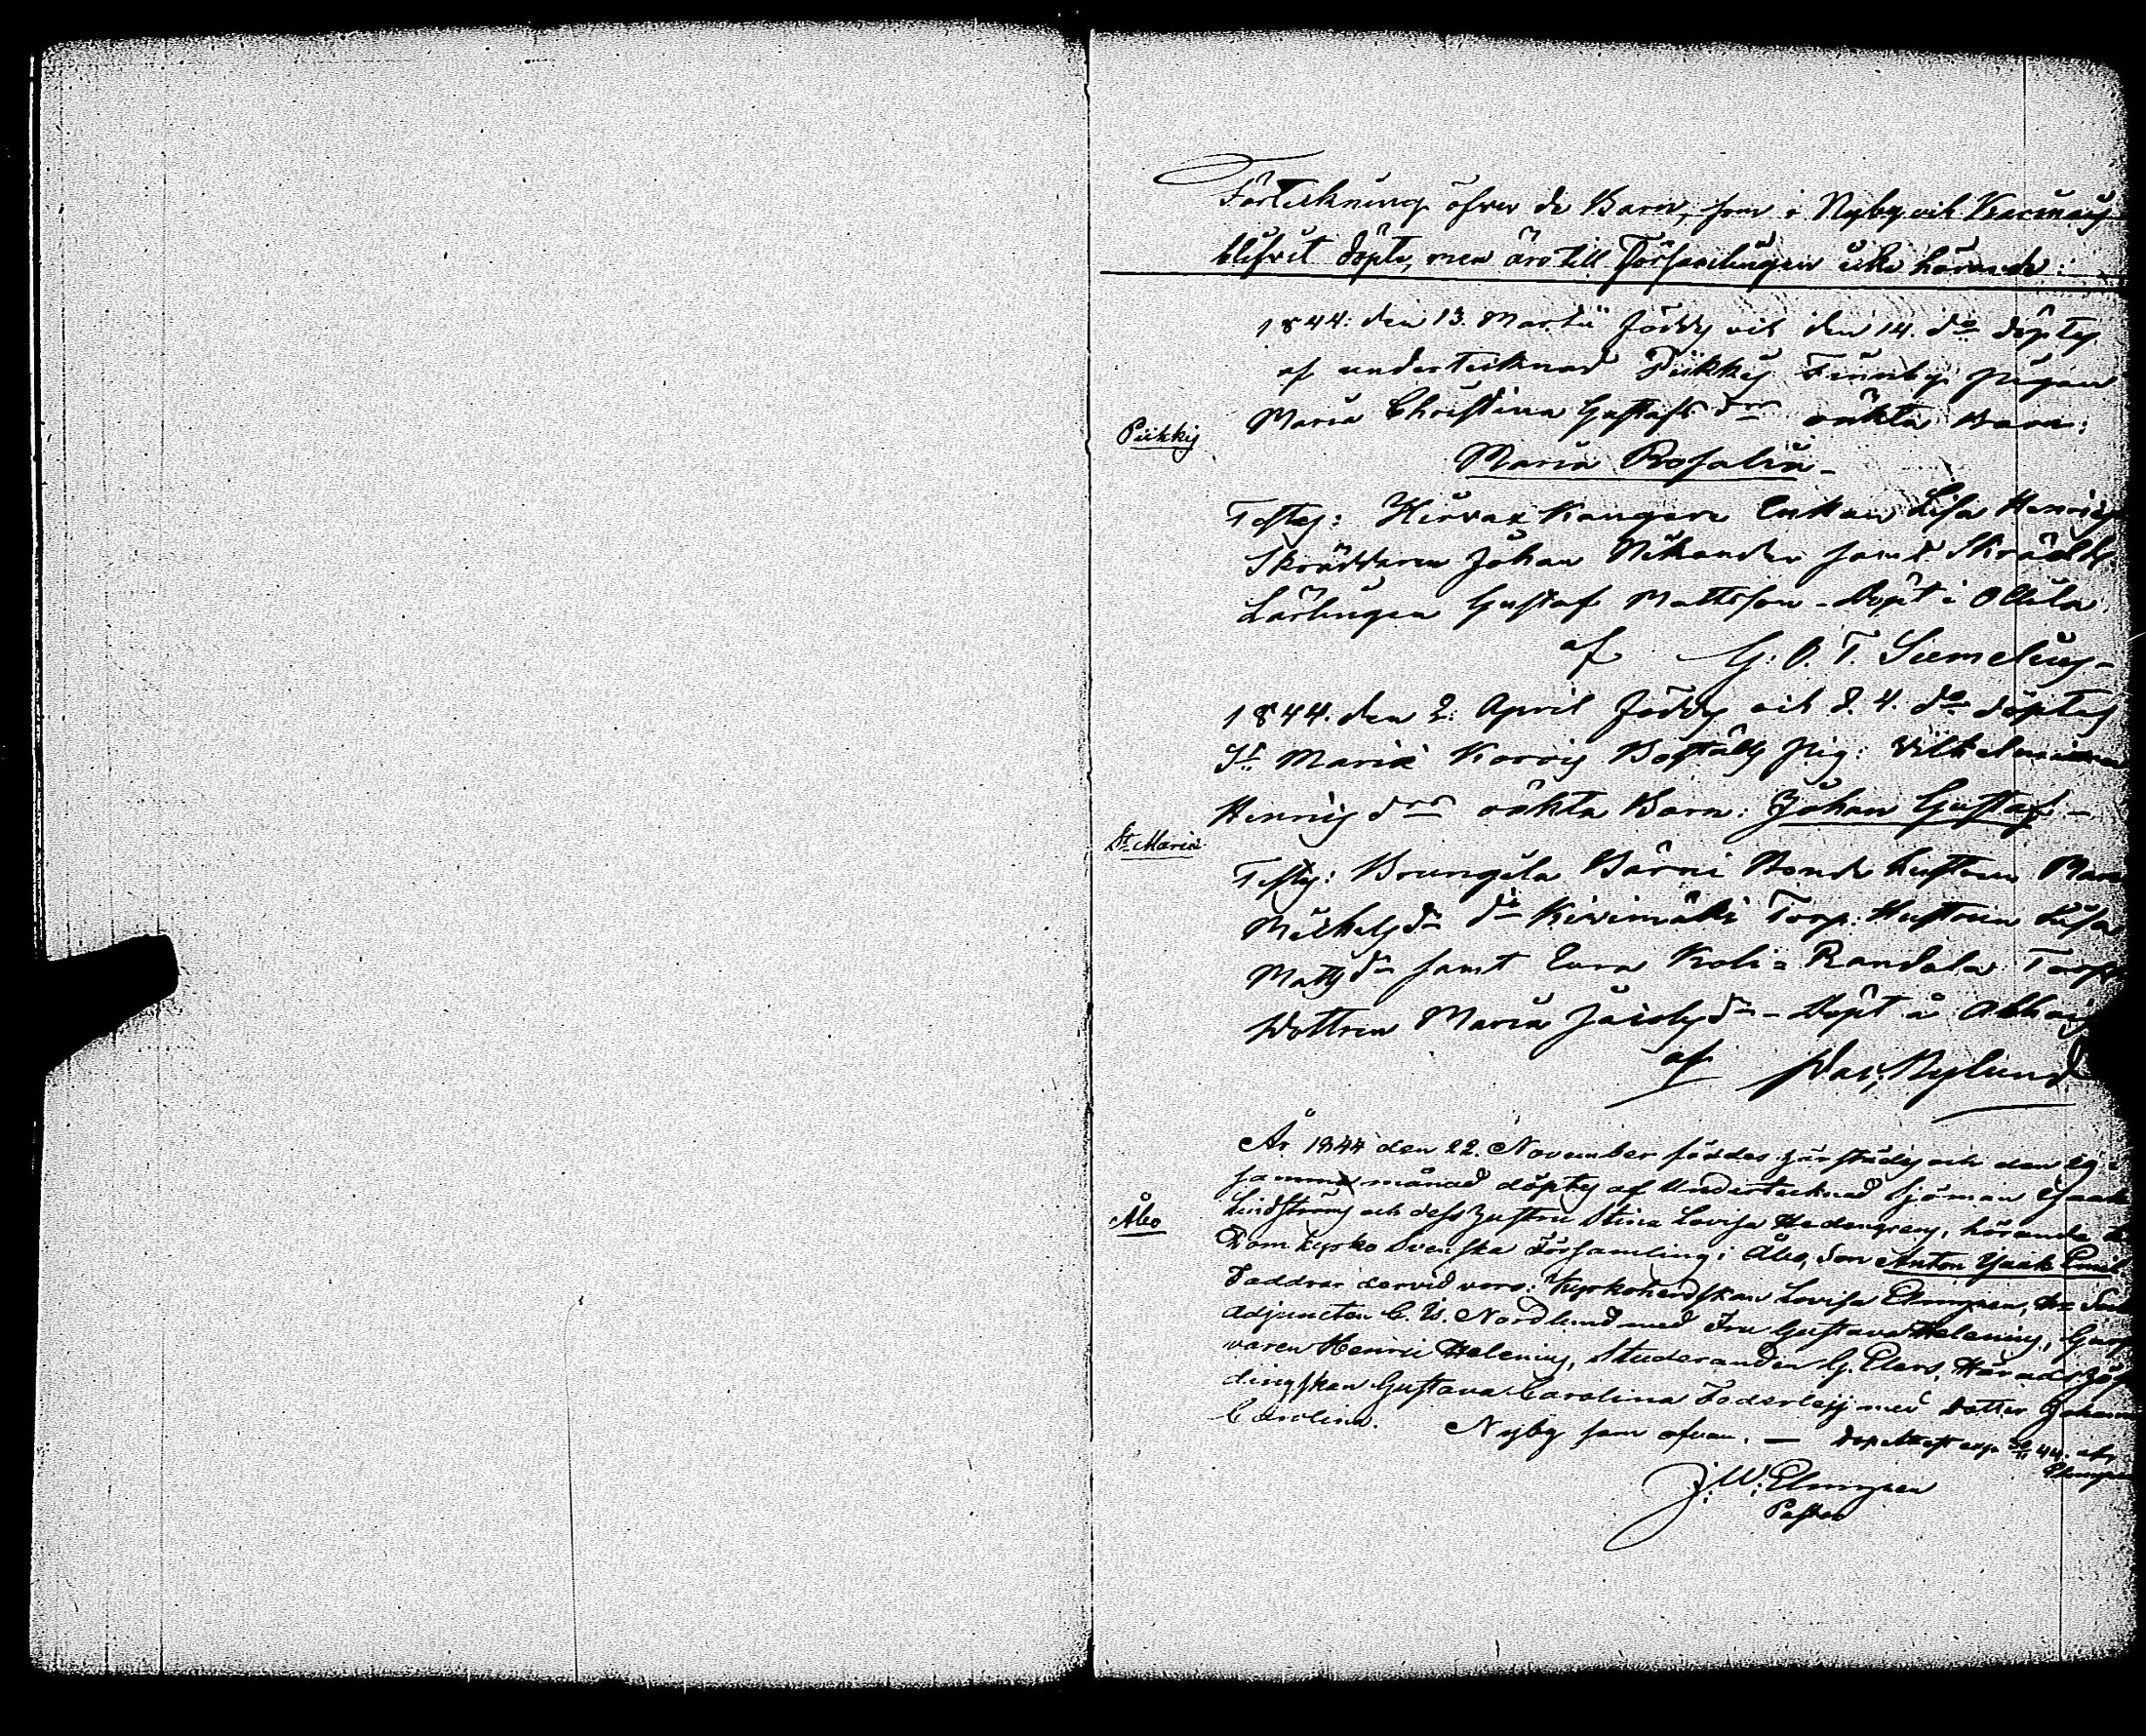 Förteckning öfver de Barn, som i Nyby och
blifvit döpte, men äro till Församlingen icke hörande:
1844. den 13. Martii föddes och den 14. do döptes
af undertecknad Piikkis Tuorby pigan
Piikkis
Maria Christina Gustafs dr oäkta Barn:
Maria Rosalia
Testes: Kangare Enkan Lisa Henrics
Skräddaren Johan Nikander samt Skrädd.
Lärlingen Gustaf Mattsson - Döpt i Ollila
af G. O. T. Sumelius
1844. den 2. April föddes och d. 4. do döptes
St Mariæ Korois Boställs pig: Wilhelmina
Henrics dr oäkta Barn: Johan Gustaf
St Mariæ
Testes: Brungila Bärni Bonde hustrun
Michels dr do Kivimäki Torp. Hustrun Lisa
Matts dr samt Eura Koli-Randala Torp
Dottren Maria Jacobs dr - Döpt å
af Dav. Nylund
År 1844 den 22. November föddes härstädes och den 29 i
samma månad döptes af Undertecknad Sjöman Isaak
Åbo
Lindströms och dess hustru Stina Lovisa Hedengrens, hörande
Domkyrko Svenska Församling i Åbo, Son Anton Isaak Emil.
Faddrar dervid voro: Kyrkoherdskan Lovisa Elmgren,
Adjuncten C. W. Nordlund med Fru Gustava Helenius, Garf
varen Henric Helenius, Studeranden G. Elers, Häradshöf
dingskan Gustava Carolina Foderleij med Dotter
Carolina. Nyby som ofvan. — Dopattest exp. 44. af
Elmgren
J. W. Elmgren
Pastor